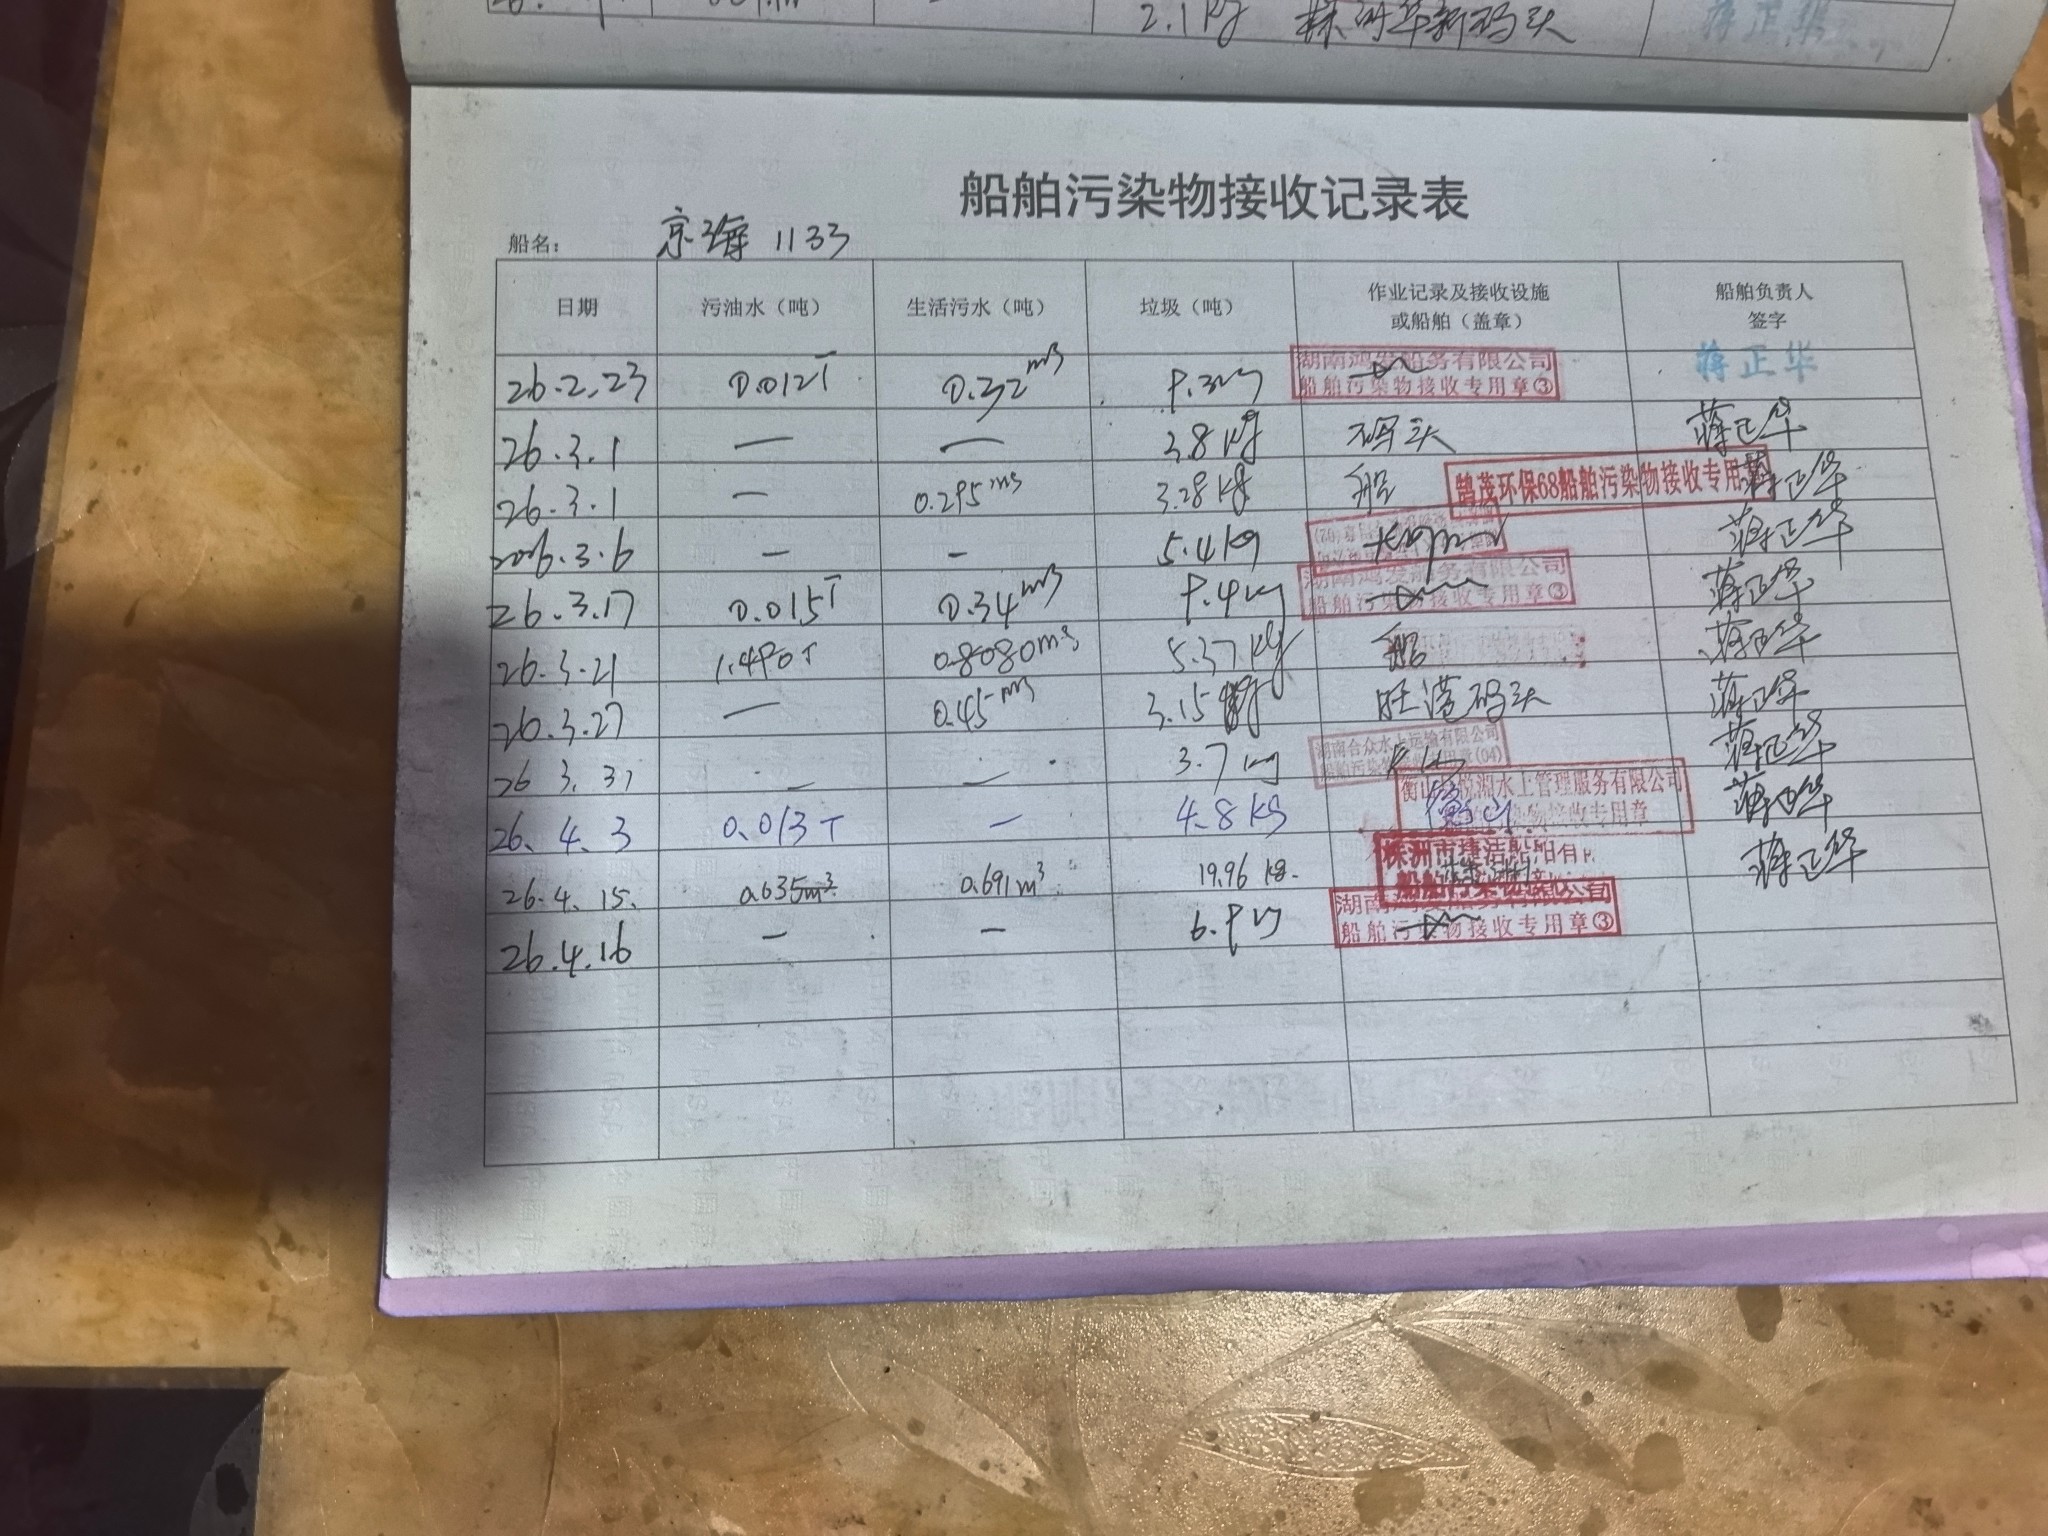 2.1kg 株洲华新码头 蒋正华
船舶污染物接收记录表
船名： 京海 1133
日期 污油水（吨） 生活污水（吨） 垃圾（吨） 作业记录及接收设施或船舶（盖章） 船舶负责人签字
26.2.23 0.012T 0.32m3 湖南鸿发船务有限公司 船舶污染物接收专用章③ 蒋正华
26.3.1 — — 3.8kg 码头 蒋正华
26.3.1 — 0.295m3 3.28kg 船 鹄茂环保68船舶污染物接收专用 蒋正华
2026.3.6 — — 5.4kg 蒋正华
26.3.17 0.015T 0.34m3 湖南鸿发船务有限公司 船舶污染物接收专用章③ 蒋正华
26.3.21 0.8080m3 5.37kg 船 蒋正华
26.3.27 — 0.45m3 3.15kg 旺港码头 蒋正华
26 3.31 — — 3.7kg 湖南合众水上运输有限公司 船舶污染物接收专用章(04) 蒋正华
26.4.3 0.013T — 4.8KG 衡山 悦湖水上管理服务有限公司 接收专用章 蒋正华
26.4.15. 0.635m³ 0.691m³ 19.96kg. 株洲市捷洁船舶有 蒋正华
26.4.16 — — 湖南鸿发船务有限公司 船舶污染物接收专用章③